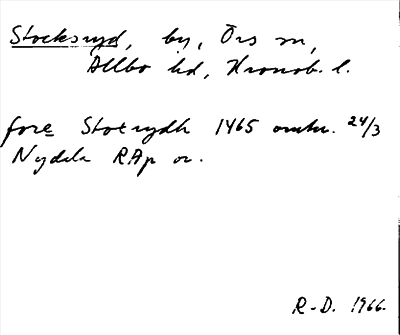 Stocksryd, by, Örs sn,
Allbo hd, Kronob. l.
fore Stocrydh 1465 omkr. 24/3
Nydala RAp or.
R-D. 1966.